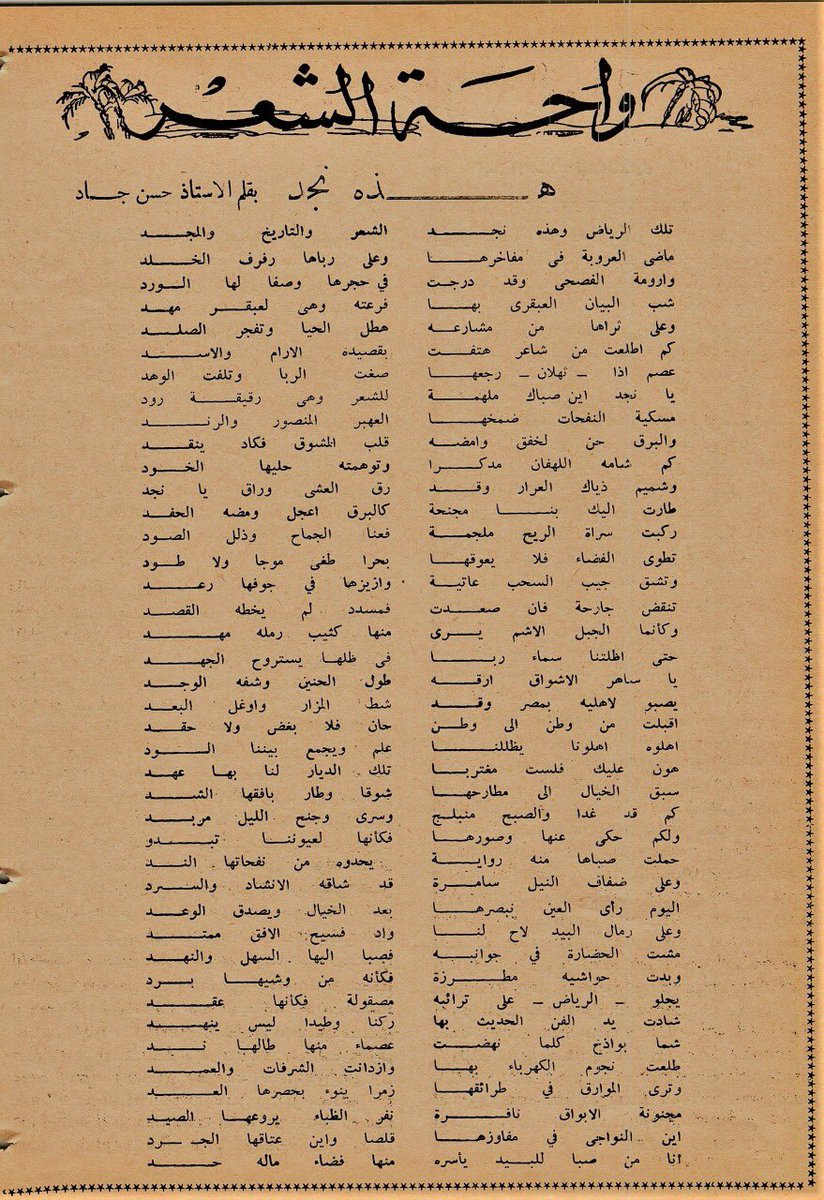 واحة الشعر
هذه نجد بقلم الاستاذ حسن جاد
تلك الرياض وهذه نجد الشعر والتاريخ والمجد
ماضى العروبة فى مفاخرها وعلى رباها رفرف الخلد
وارومة الفصحى وقد درجت في حجرها وصفا لها الورد
شب البيان العبقرى بها فرعته وهى لعبقر مهد
وعلى ثراها من مشارعه هطل الحيا وتفجر الصلد
كم اطلعت من شاعر هتفت بقصيده الارام والاسد
عصم اذا - ثهلان - رجعها صغت الربا وتلفت الوهد
يا نجد اين صباك ملهمة للشعر وهى رقيقة رود
مسكية النفحات ضمخها العهبر المنصور والرند
والبرق حن لخفق وامضه قلب المشوق فكاد ينقد
كم شامه اللهفان مدكرا وتوهمته حليها الخود
وشميم ذياك العرار وقد رق العشى وراق يا نجد
طارت اليك بنا مجنحة كالبرق اعجل ومضه الحفد
ركبت سراة الريح ملجمة فعنا الجماح وذلل الصود
تطوى الفضاء فلا يعوقها بحرا طغى موجا ولا طود
وتشق جيب السحب عاتية وازيزها في جوفها رعد
تنقض جارحة فان صعدت فمسدد لم يخطه القصد
وكأنما الجبل الاشم يرى منها كثيب رمله مهد
حتى اظلتنا سماء ربا فى ظلها يستروح الجهد
يا ساهر الاشواق ارقه طول الحنين وشفه الوجد
يصبو لاهليه بمصر وقد شط المزار واوغل البعد
اقبلت من وطن الى وطن حان فلا بغض ولا حقد
اهلوه اهلونا يظللنا علم ويجمع بيننا الود
هون عليك فلست مغتربا تلك الديار لنا بها عهد
سبق الخيال الى مطارحها شوقا وطار بافقها الشد
كم قد غدا والصبح منبلج وسرى وجنح الليل مربد
ولكم حكى عنها وصورها فكأنها لعيوننا تبدو
حملت صباها منه رواية يحدوه من نفحاتها الند
وعلى ضفاف النيل سامرة قد شاقه الانشاد والسرد
اليوم رأى العين نبصرها بعد الخيال ويصدق الوعد
وعلى رمال البيد لاح لنا واد فسيح الافق ممتد
مشت الحضارة في جوانبه فصبا اليها السهل والنهد
وبدت حواشيه مطرزة فكأنه من وشيها برد
يجلو - الرياض - على ترائبه مصقولة فكأنها عقد
شادت يد الفن الحديث بها ركنا وطيدا ليس ينهد
شما بواذخ كلما نهضت عصماء منها طالها ند
طلعت نجوم الكهرباء بها وازدانت الشرفات والعمد
وترى الموارق في طرائقها زمرا ينوء بحصرها العد
مجنونة الابواق نافرة نفر الظباء يروعها الصيد
اين النواجى في مفاوزها قلصا واين عتاقها الجرد
انا من صبا للبيد يأسره منها فضاء ماله حد